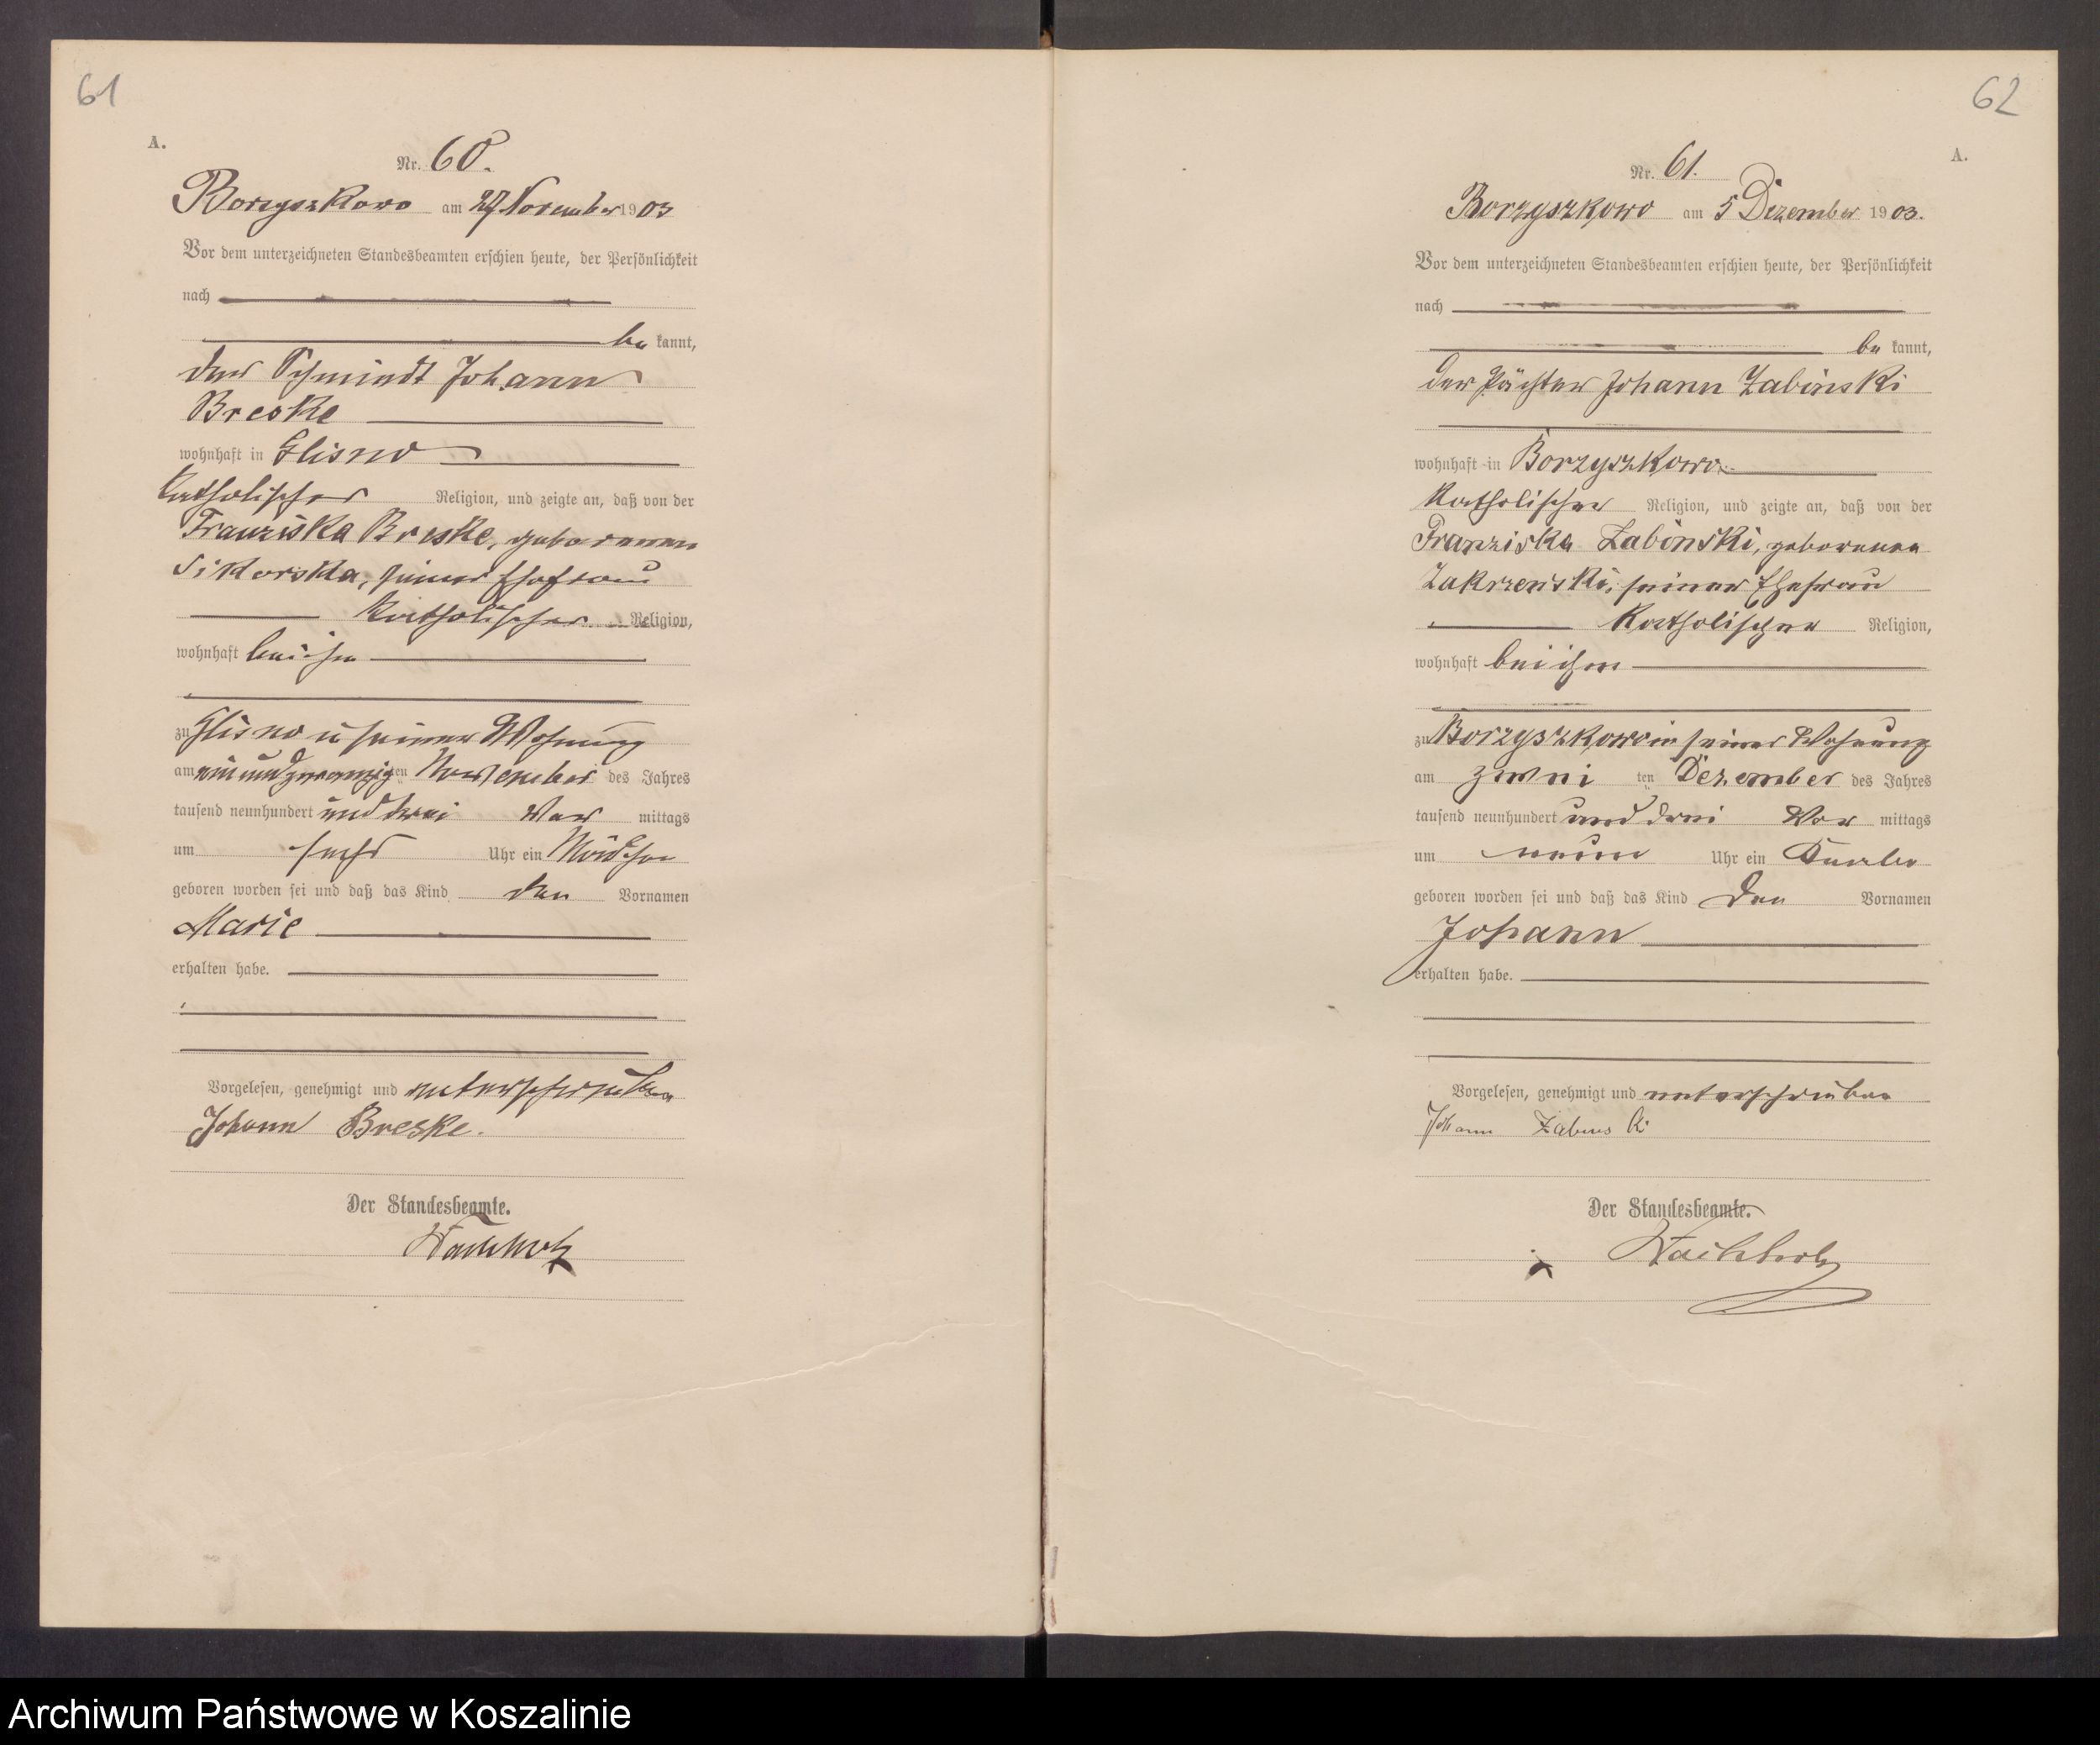 61
A.
Nr. 60.
Borzyszkowo am 27 November 1903
Vor dem unterzeichneten Standesbeamten erschien heute, der Persönlichkeit
nach
be kannt,
der Schmiedt Johann
Breske
wohnhaft in Glisno
katholischer Religion, und zeigte an, daß von der
Franziska Breske, geborenen
Sikorska, seiner Ehefrau
katholischer Religion,
wohnhaft bei ihm
zu Glisno in seiner Wohnung
am einundzwanzigten November des Jahres
tausend neunhundert und drei Vor mittags
um sechs Uhr ein Mädchen
geboren worden sei und daß das Kind den Vornamen
Marie
erhalten habe.
Vorgelesen, genehmigt und unterschrieben
Johann Breske.
Der Standesbeamte.
Wachholz
62
A.
Nr. 61.
Borzyszkowo am 5 Dezember 1903.
Vor dem unterzeichneten Standesbeamten erschien heute, der Persönlichkeit
nach
be kannt,
der Pächter Johann Zabinski
wohnhaft in Borzyszkowo
katholischer Religion, und zeigte an, daß von der
Franziska Zabinski, geborenen
Zakrzewski, seiner Ehefrau
katholischer Religion,
wohnhaft bei ihm
zu Borzyszkowo in seiner Wohnung
am zwei ten Dezember des Jahres
tausend neunhundert und drei Vor mittags
um neun Uhr ein Knabe
geboren worden sei und daß das Kind den Vornamen
Johann
erhalten habe.
Vorgelesen, genehmigt und unterschrieben
Johann Zabinski
Der Standesbeamte.
Wachholz
Archiwum Państwowe w Koszalinie